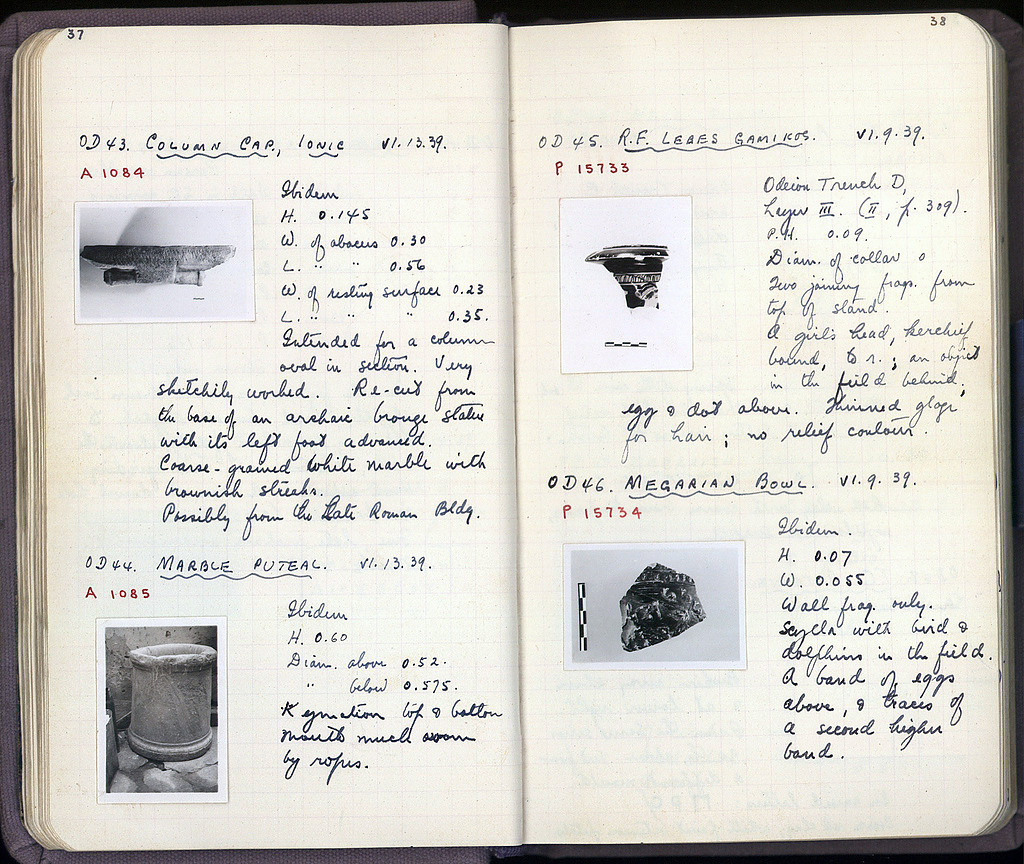 37
OD 43. COLUMN CAP., IONIC VI.13.39.
A 1084
Ibidem
H. 0.145
W. of abacus 0.30
L. " " 0.56
W. of resting surface 0.23
L. " " " 0.35.
Intended for a column
oval in section. Very
sketchily worked. Re-cut from
the base of an archaic bronze statue
with its left foot advanced.
Coarse-grained white marble with
brownish streaks.
Possibly from the Late Roman Bldg.
OD 44. MARBLE PUTEAL. VI.13.39.
A 1085
Ibidem
H. 0.60
Diam. above 0.52.
" below 0.575.
Kymation top & bottom
mouth much worn
by ropes.
38
OD 45. R.F. LEBES GAMIKOS. VI.9.39.
P 15733
Odeion Trench D,
Layer III. (II, p. 309).
P.H. 0.09.
Diam. of collar 0
Two joining frags. from
top of stand.
A girl's head, kerchief
bound, to r.; an object
in the field behind;
egg & dot above. Thinned glaze
for hair; no relief contour.
OD 46. MEGARIAN BOWL. VI.9.39.
P 15734
Ibidem.
H. 0.07
W. 0.055
Wall frag. only.
Scylla with bird &
dolphins in the field.
A band of eggs
above, & traces of
a second higher
band.